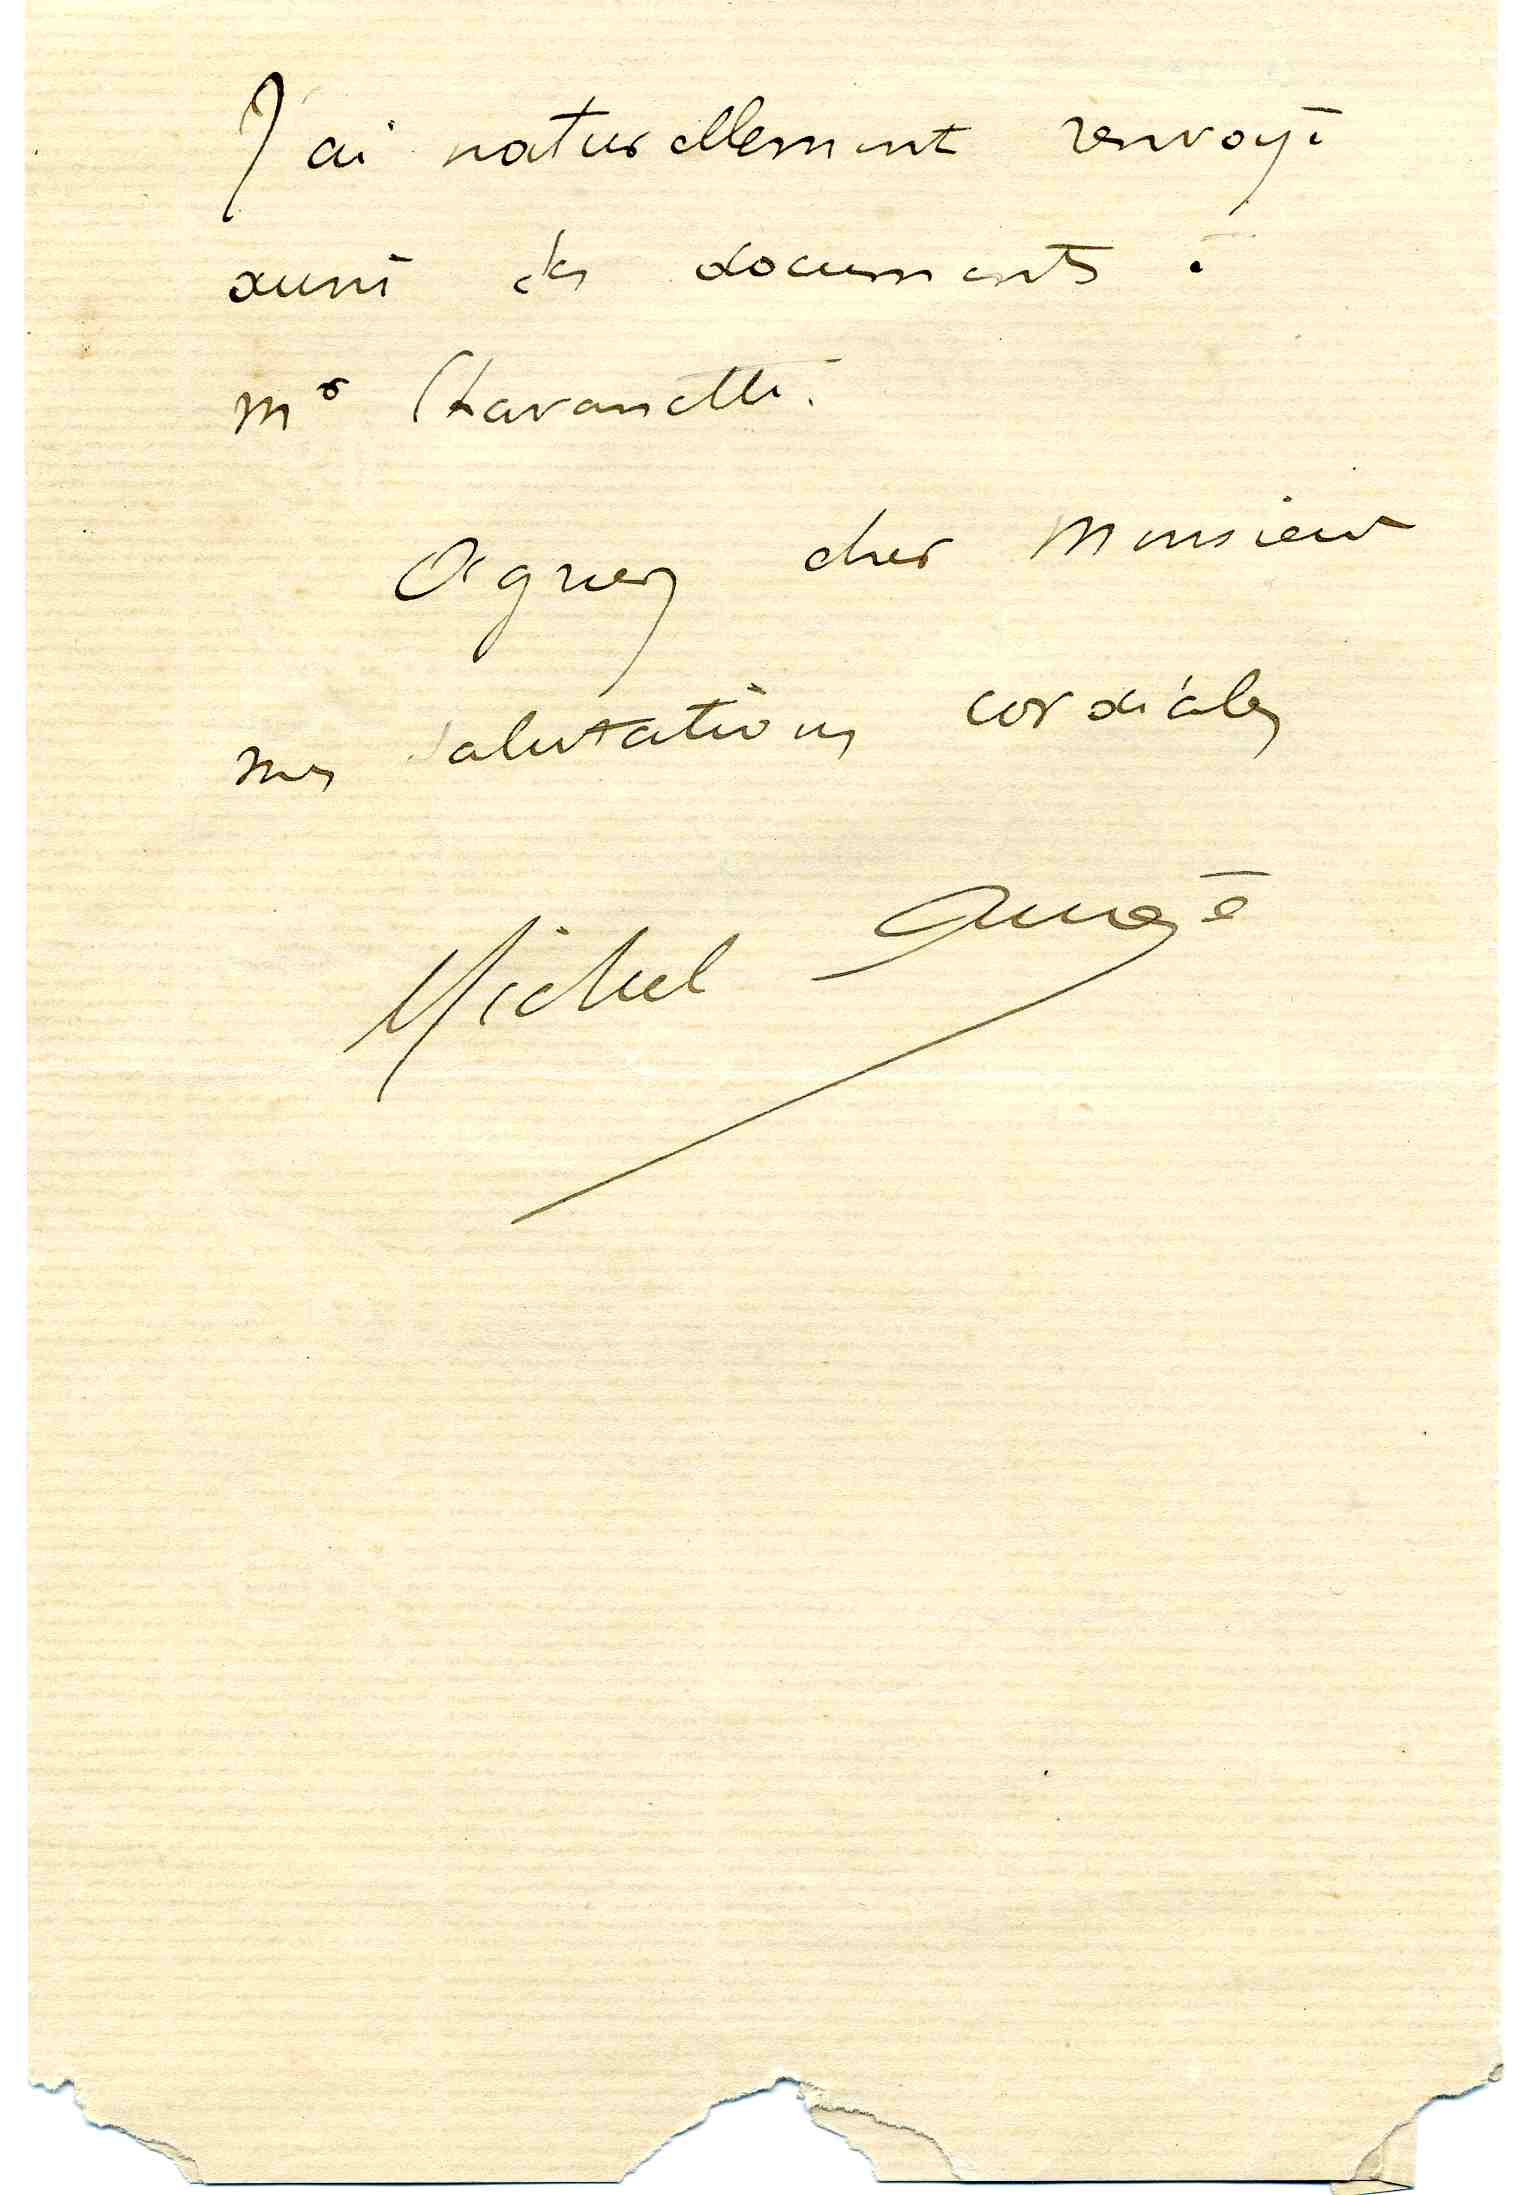 J'ai naturellement renvoyé
aussi les documents à
Mr Chavanette.
Agréez cher Monsieur
mes salutations cordiales
Michel Augé